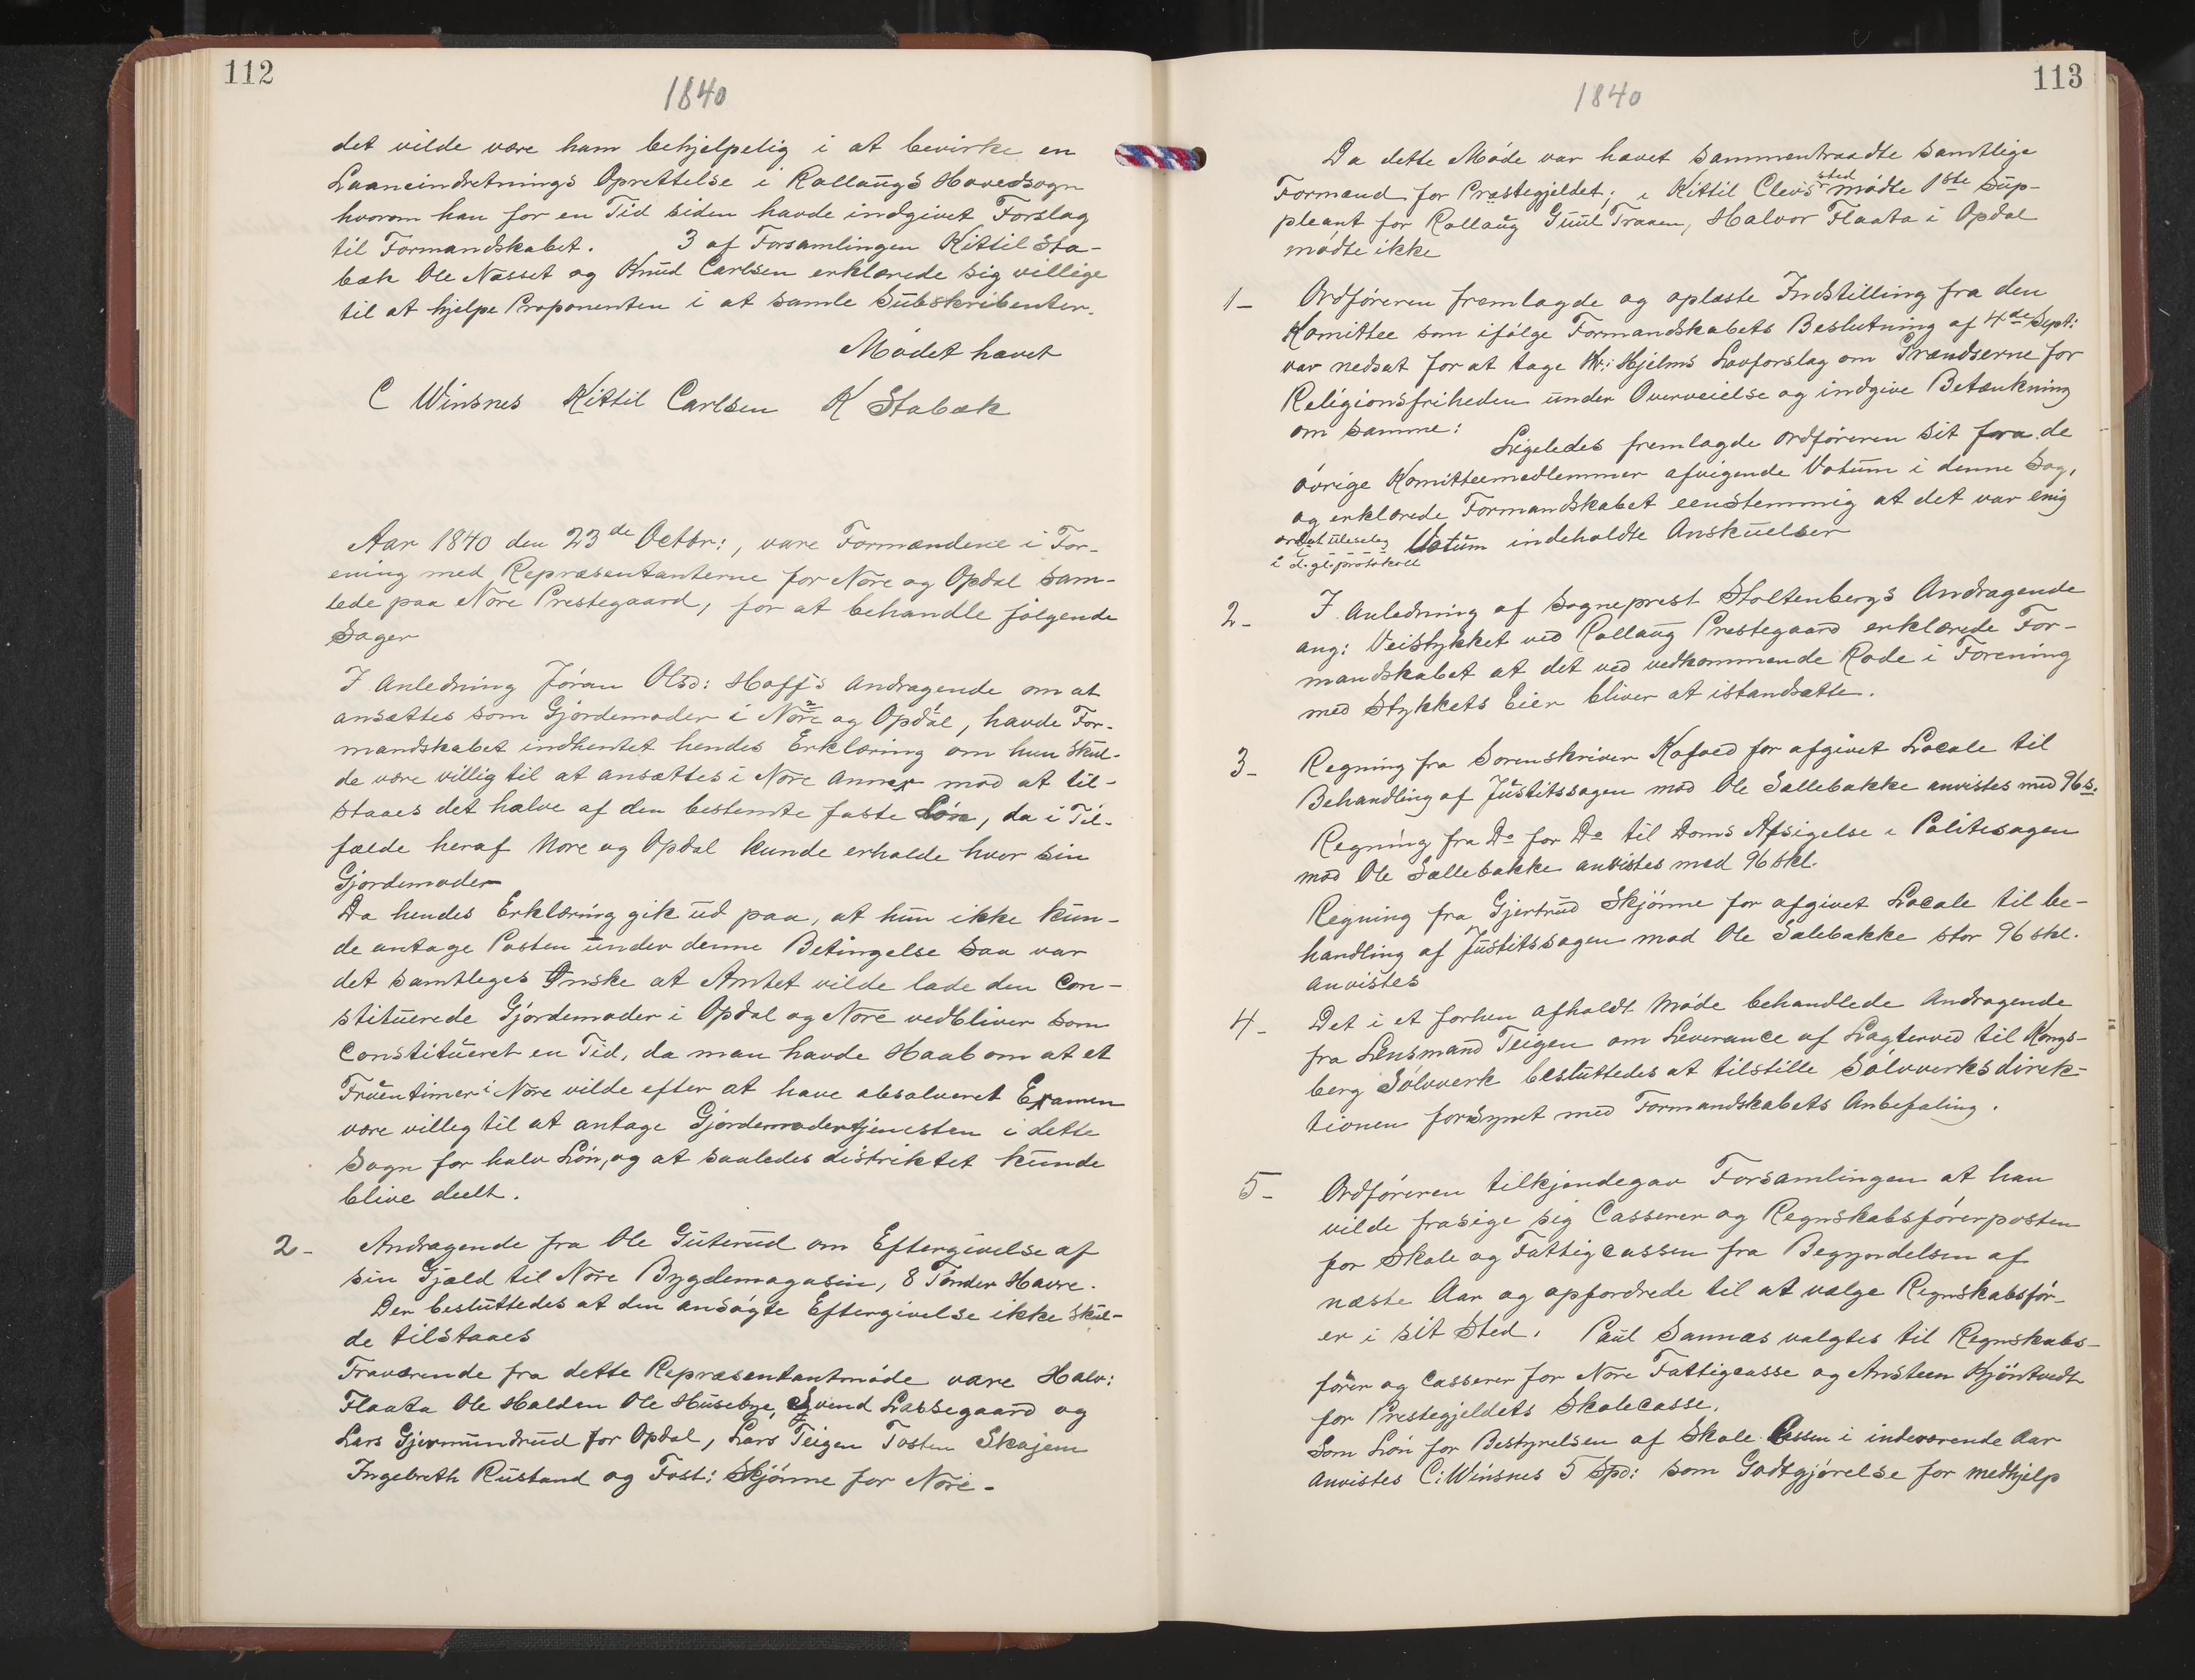 112
1840
det vilde være ham behjelpelig i at bevirke en
Laaneindretnings Oprettelse i Rollaugs Hovedsogn
hvorom han for en Tid siden havde indgivet Forslag
til Formandskabet. 3 af Forsamlingen Kittil Sta-
bæk Ole Næsset og Knud Carlsen erklærede sig villige
til at hjelpe Proponenten i at samle Subskribenter.
Mødet hævet
C Winsnes Kittil Carlsen K Stabæk
Aar 1840 den 23de Octbr:, vare Formændene i For-
ening med Repræsentanterne for Nore og Opdal sam-
lede paa Nore Prestegaard, for at behandle følgende
Sager
I Anledning Jøran Olsd: Hoffs Andragende om at
ansættes som Gjordemoder i Nore og Opdal, havde For-
mandskabet indhentet hendes Erklæring om hun skul-
de være villig til at ansættes i Nore Annex mod at til-
staaes det halve af den bestemte faste Løn, da i Til-
fælde heraf Nore og Opdal kunde erholde hver sin
Gjordemoder
Da hendes Erklæring gik ud paa, at hun ikke kun-
de antage Posten under denne Betingelse saa var
det samtleges Ønske at Amtet vilde lade den Con-
stituerede Gjordemoder i Opdal og Nore vedbliver som
Constitueret en Tid, da man havde Haab om at et
Fruentimer i Nore vilde efter at have absolveret Examen
være villeg til at antage Gjordemodertjenesten i dette
Sogn for halv Løn, og at saaledes distriktet kunde
blive deelt.
2- Andragende fra Ole Guterud om Eftergivelse af
sin Gjæld til Nore Bygdemagasin, 8 Tønder Havre.
Der besluttedes at den ansøgte Eftergivelse ikke skul-
de tilstaaes
Fraværende fra dette Repræsentantmøde vare Halv:
Flaata Ole Halden Ole Husebye, Eyvind Lassegaard og
Lars Gjermundrud for Opdal, Lars Teigen Tosten Skajem
Ingebreth Rustand og Tost: Skjønne for Nore-
113
1840
Da dette Møde var hævet sammentraadte samtlige
Formænd for Præstegjeldet; i Kittil Clevs sted mødte 1ste Sup-
pleant for Rollaug Guul Traaen, Halvor Flaata i Opdal
mødte ikke
1- Ordføreren fremlagde og oplæste Indstilling fra den
Komittee som ifølge Formandskabets Beslutning af 4de Sept:
var nedsat for at tage Hr: Hjelms Lovforslag om Grændserne for
Religionsfriheden under Overveielse og indgive Betænkning
om samme: Ligeledes fremlagde ordføreren sit fra de
øvrige Komitteemedlemmer afvigende Votum i denne Sag,
og erklærede Formandskabet eenstemmig at det var enig
ordet uleselig Votum indeholdte Anskuelser
i d. gl. protokoll
2- I Anledning af Sogneprest Stoltenbergs Andragende
ang: Veistykket ved Rollaug Prestegaard erklærede For-
mandskabet at det ved vedkommende Rode i Forening
med Stykkets Eier bliver at istandsætte.
3- Regning fra Sorenskriver Kofoed for afgivet Locale til
Behandling af Justitssagen mod Ole Sællebakke anvistes med 96 s.
Regning fra Do for Do til Doms Afsigelse i Politisagen
mod Ole Sællebakke anvistes med 96 skl.
Regning fra Gjertrud Skjønne for afgivet Locale til be-
handling af Justitssagen mod Ole Salebakke stor 96 skl.
anvistes
4- Det i et forhen afholdt Møde behandlede Andragende
fra Lensmand Teigen om Leverance af Lagterved til Kongs-
berg Sølvverk besluttedes at tilstille Sølvverksdirek-
tionen forsynet med Formandskabets Anbefaling.
5- Ordføreren tilkjendegav Forsamlingen at han
vilde frasige sig Casserer og Regnskabsførerposten
for Skole og Fattigcassen fra Begyndelsen af
næste Aar og opfordrede til at vælge Regnskabsfør-
er i sit Sted. Paul Sannæs valgtes til Regnskabs-
fører og Casserer for Nore Fattigcasse og Ansteen Kjöntvedt
for Prestegjeldets Skolecasse.
Som Løn for Bestyrelsen af Skole Cassen i indeværende Aar
anvistes C: Winsnes 5 Spd: som Godtgjørelse for medhjelp